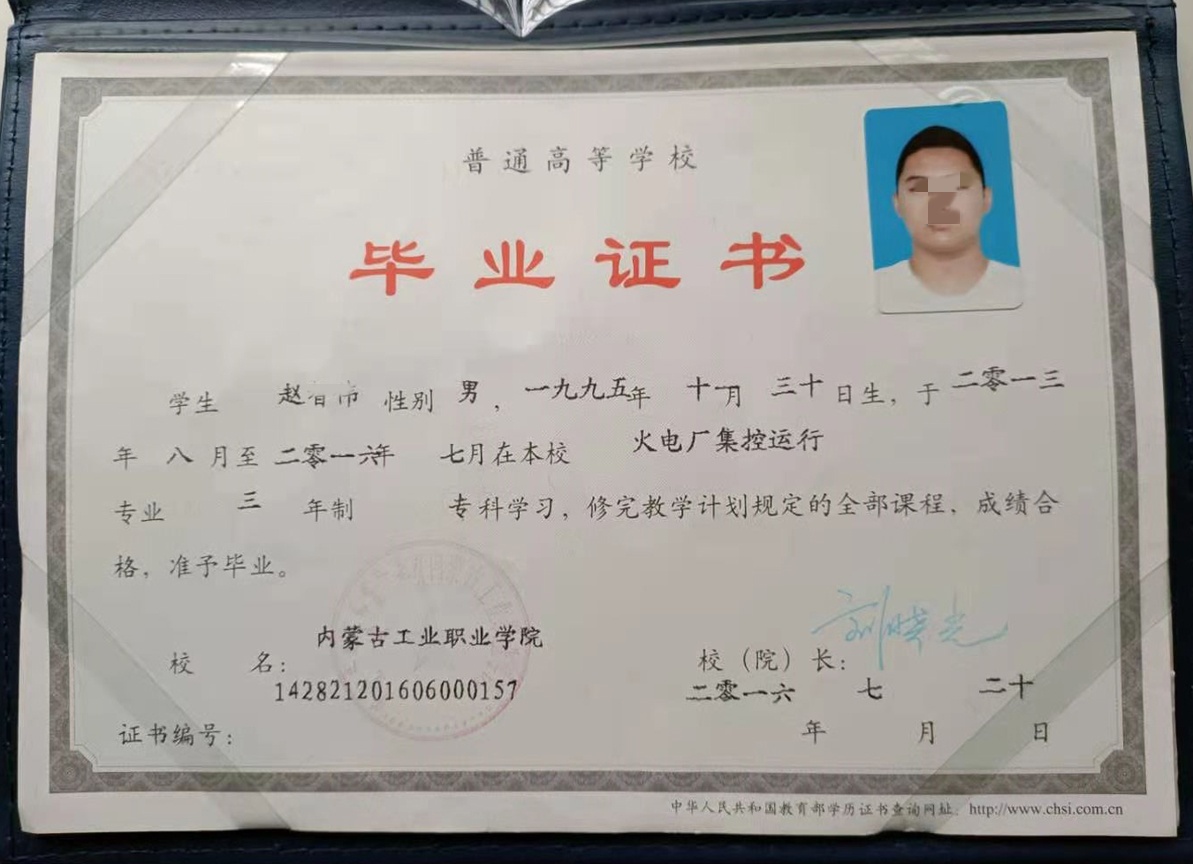 普通高等学校
毕业证书
学生 赵 性别 男，一九九五年 十一月 三十日生，于二零一三
年 八 月至 二零一六年 七月在本校 火电厂集控运行
专业 三 年制 专科学习，修完教学计划规定的全部课程，成绩合
格，准予毕业。
校 名： 内蒙古工业职业学院
校（院）长：刘晓光
证书编号：142821201606000157
二零一六年 七月 二十日
中华人民共和国教育部学历证书查询网址：http://www.chsi.com.cn